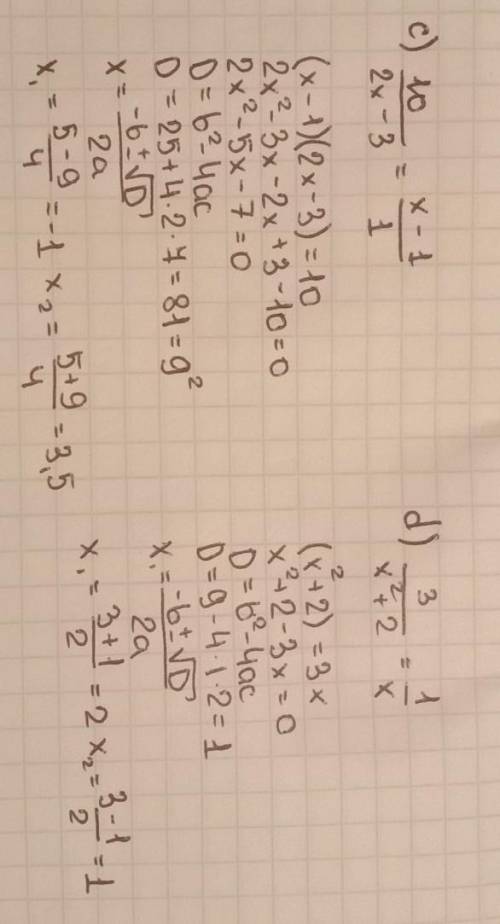 c) 10/(2x-3) = (x-1)/1
(x-1)(2x-3)=10
2x²-3x-2x+3-10=0
2x²-5x-7=0
D=b²-4ac
D=25+4·2·7=81=9²
x=(-b±√D)/2a
x₁=(5-9)/4=-1 x₂=(5+9)/4=3,5
d) 3/(x²+2)=1/x
(x²+2)=3x
x²+2-3x=0
D=b²-4ac
D=9-4·1·2=1
x₁=(-b±√D)/2a
x₁=(3+1)/2=2 x₂=(3-1)/2=1